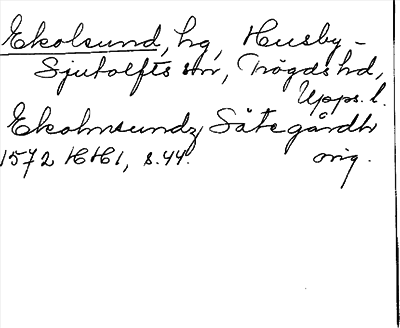 Ekolsund, hg, Husby-
Sjutolfts sn, Trögds hd,
Upps. l.
Ekolmsundz Sätegårdh
1572 HH1, s. 44. orig.